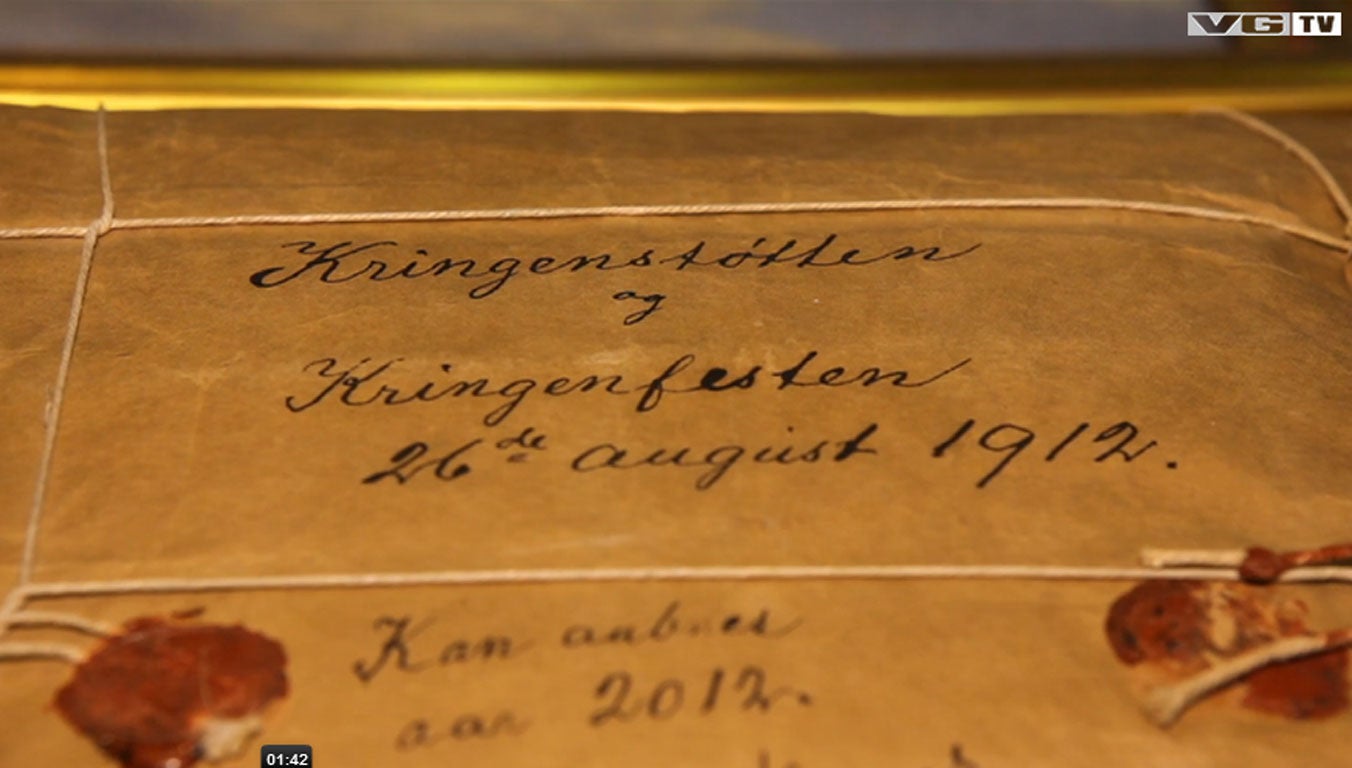 VG TV
Kringenstøtten
og
Kringenfesten
26de august 1912.
Kan
aar 2012.
01:42